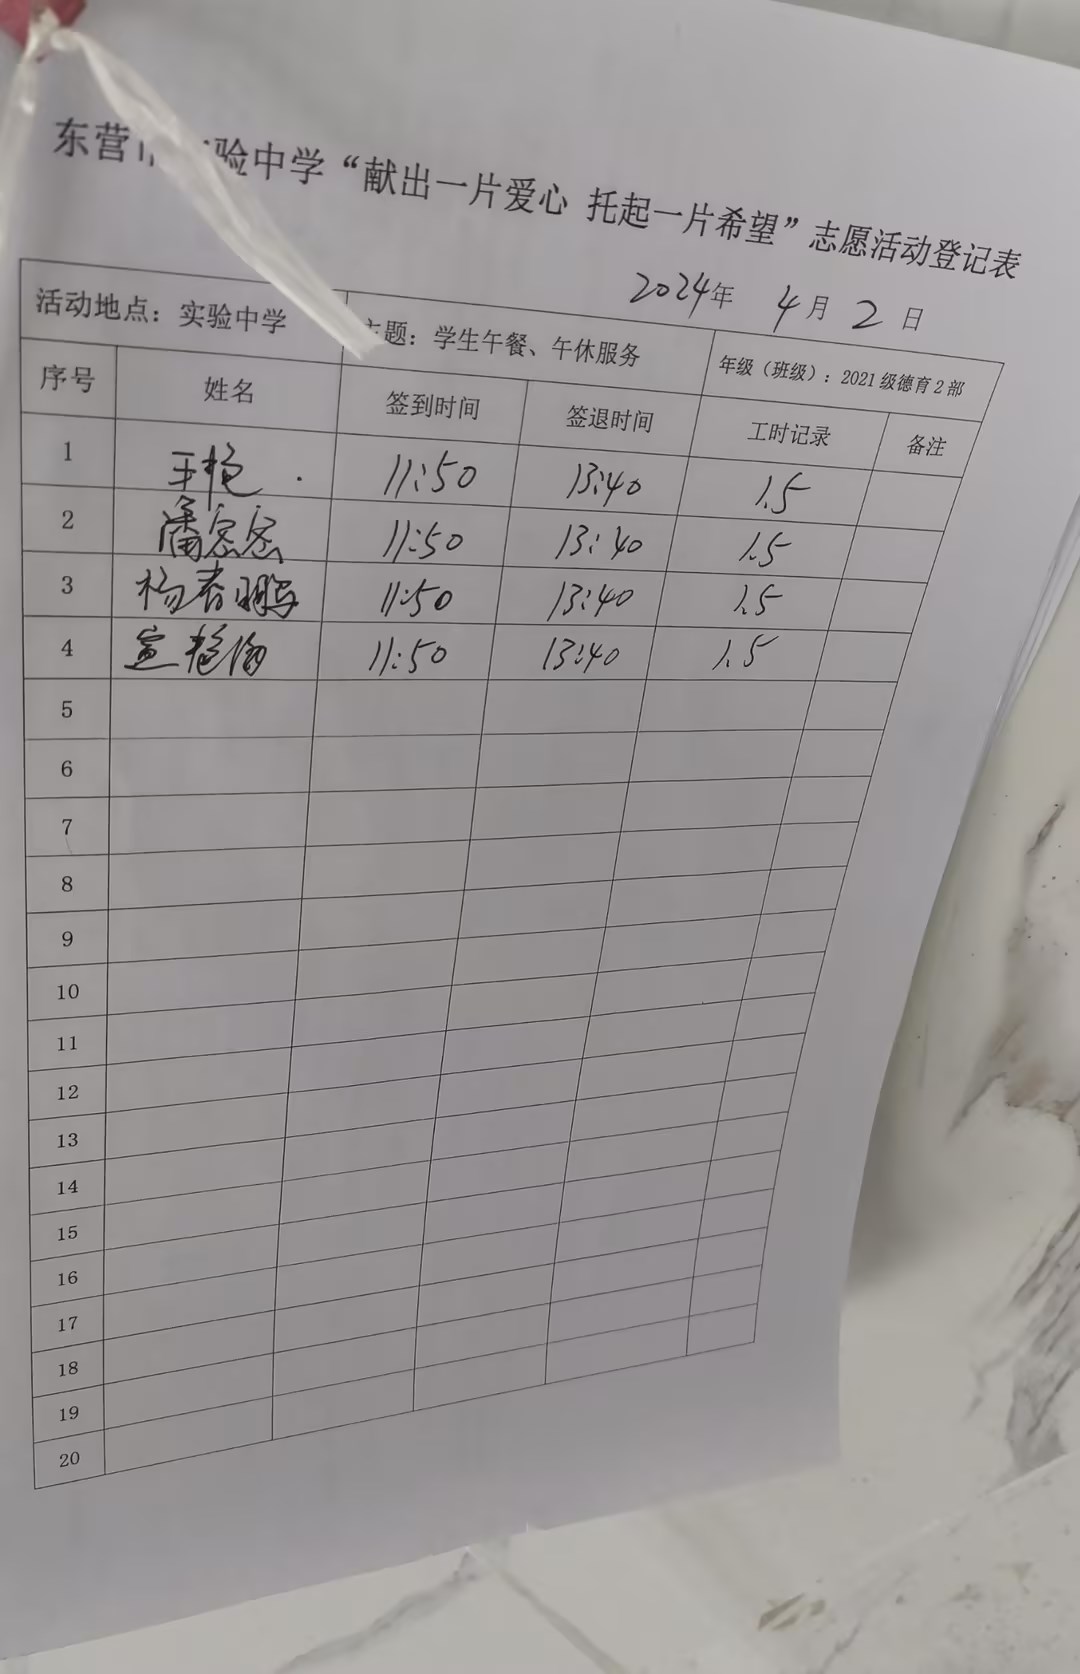 东营 验中学“献出一片爱心 托起一片希望”志愿活动登记表
2024年 4月 2日
活动地点：实验中学 主题：学生午餐、午休服务 年级（班级）：2021级德育2部
序号 姓名 签到时间 签退时间 工时记录 备注
1 王艳 11:50 13:40 1.5
2 潘宏宏 11:50 13:40 1.5
3 杨春鹏 11:50 13:40 1.5
4 艳 11:50 13:40 1.5
5
6
7
8
9
10
11
12
13
14
15
16
17
18
19
20